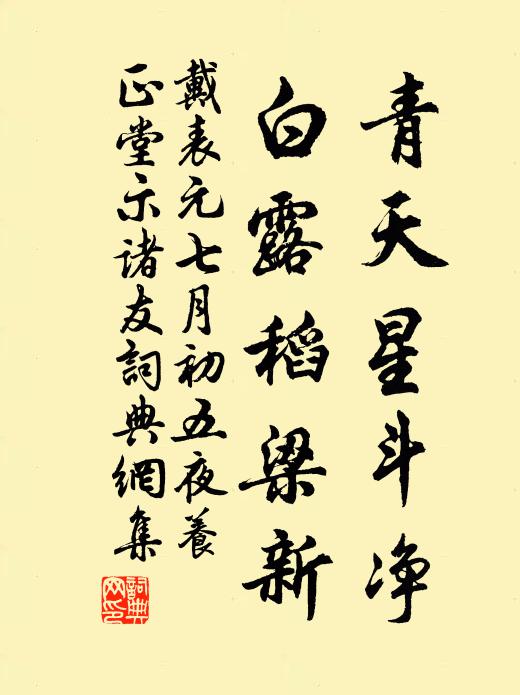 青天星斗净
白露稻梁新
戴表元七月初五夜養
正堂示诸友詞典網集
詞典网印